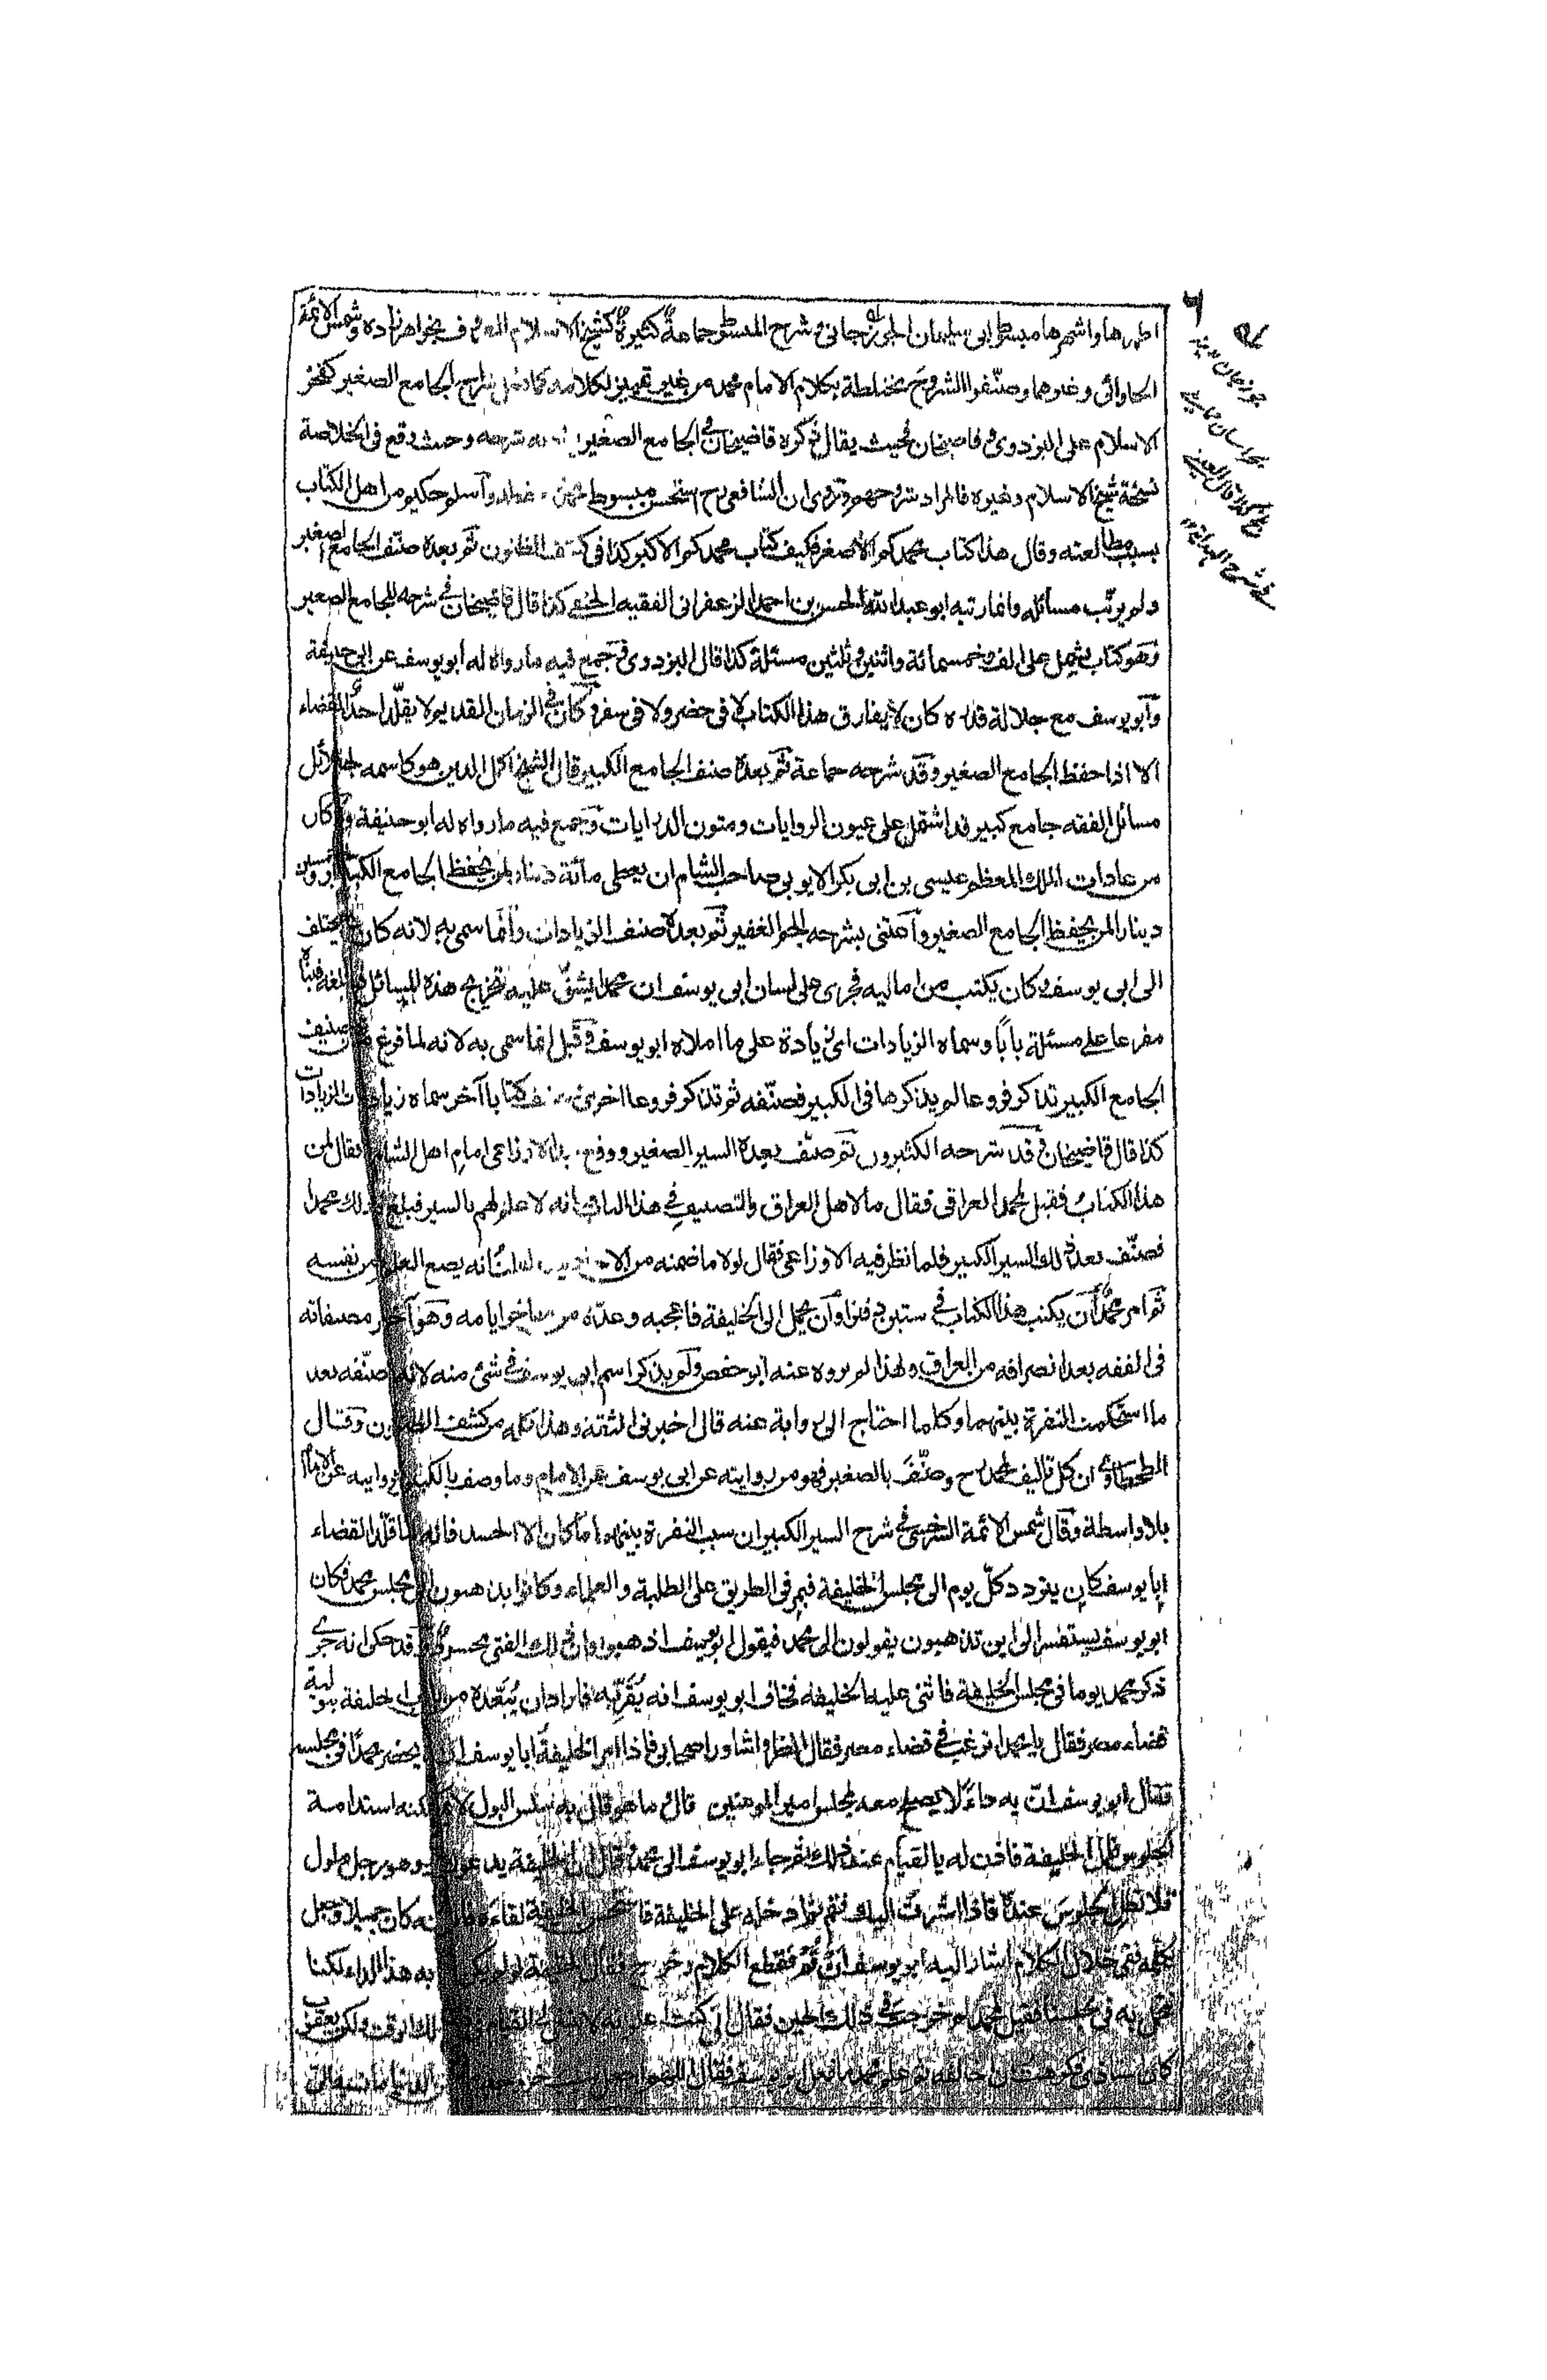 اظهرها واشهرها مبسوط ابى سليمان الجوزجانى وشرح المبسوط جماعةٌ كثيرةٌ كشيخ الاسلام المعروف بخواهرزاده وشمس الائمة
الحلوائى وغيرهما وصنّفوا الشروح مختلطة بكلام الامام محمد من غير تمييز لكلامه كما فعل شارح الجامع الصغير كفخر
الاسلام على البزدوى وقاضيخان فحيث يقال ذكره قاضيخان فى الجامع الصغير به شرحه وحيث وقع فى الخلاصة
نسخة شيخ الاسلام وغيره فالمراد شروحهم وتروى ان الشافعى رح استحسن مبسوط محمد وأسلم حكيم من اهل الكتاب
بسبب مطالعته وقال هذا كتاب محمدكم الاصغر فكيف كتاب محمدكم الاكبر كذا فى كشف الظنون ثم بعده صنّف الجامع الصغير
ولم يرتّب مسائله وانما رتبه ابو عبد الله الحسن بن احمد الزعفرانى الفقيه الحنفى كذا قال قاضيخان فى شرحه للجامع الصغير
وهو كتاب يشمل على الف وخمسمائة واثنين وثلثين مسئلة كذا قال البزدوى جمع فيه ما رواه له ابو يوسف عن ابى حنيفة
وابو يوسف مع جلالة قدره كان لا يفارق هذا الكتاب لا فى حضر ولا فى سفر وكان فى الزمان القديم لا يقلّد احدٌ القضاء
الا اذا حفظ الجامع الصغير وقد شرحه جماعة ثم بعده صنف الجامع الكبير قال الشيخ اكمل الدين هو كاسمه لجلائل
مسائل الفقه جامع كبير قد اشتمل على عيون الروايات ومتون الدرايات وجمع فيه ما رواه له ابو حنيفة وكان
من عادات الملك المعظم عيسى بن ابى بكر الايوبى صاحب الشام ان يعطى مائة دينار لمن يحفظ الجامع الكبير وخمسين
دينارا لمن يحفظ الجامع الصغير واعتنى بشرحه الجم الغفير ثم بعده صنف الزيادات وانّما سمى به لانه كان يختلف
الى ابى يوسف وكان يكتب من اماليه فجرى على لسان ابى يوسف ان محمدا يشقّ عليه تخريج هذه المسائل فبلغه فبناه
مفرعا على مسئلة بابًا وسماه الزيادات اى زيادة على ما املاه ابو يوسف وقيل انما سمى به لانه لما فرغ من تصنيف
الجامع الكبير تذكر فروعا لم يذكرها فى الكبير فصنّفه ثم تذكر فروعا اخرى فصنف كتابا آخر سماه زيادات الزيادات
كذا قال قاضيخان وقد شرحه الكثيرون ثم صنّف بعده السير الصغير ووقع بيد الاوزاعى امام اهل الشام فقال لمن
هذا الكتاب فقيل لمحمد العراقى فقال ما لاهل العراق والتصنيف فى هذا الباب انه لا علم لهم بالسير فبلغ ذلك محمدا
فصنّف بعد ذلك السير الكبير فلما نظر فيه الاوزاعى فقال لولا ما ضمنه من الاحاديث لقلتُ انه يضع العلم من نفسه
ثم امر محمدٌ ان يكتب هذا الكتاب فى ستين دفترا وان يحمل الى الخليفة فاعجبه وعدّه من مفاخر ايامه وهو آخر مصنفاته
فى الفقه بعد انصرافه من العراق ولهذا لم يروه عنه ابو حفص ولم يذكر اسم ابى يوسف فى شئ منه لانه صنّفه بعد
ما استحكمت النفرة بينهما وكلما احتاج الى رواية عنه قال اخبرنى الثقة وهذا كله من كشف الظنون وقال
الطحطاوى ان كل تاليف لمحمد رح وصنّف بالصغير فهو من روايته عن ابى يوسف عن الامام وما وصف بالكبير فروايته عن الامام
بلا واسطة وقال شمس الائمة السرخسى فى شرح السير الكبير ان سبب النفرة بينهما ما كان الا الحسد فانه لما قلّد القضاء
ابا يوسف كان يتردد كلّ يوم الى مجلس الخليفة فيمر فى الطريق على الطلبة والعلماء وكانوا يذهبون الى مجلس محمد فكان
ابو يوسف يستفسر الى اين تذهبون يقولون الى محمد فيقول ابو يوسف اذهبوا وان ذلك الفتى محسود وقد حكوا انه جرى
ذكر محمد يوما فى مجلس الخليفة فاثنى عليه الخليفه فخاف ابو يوسف انه يُقَرّبه فاراد ان يُبَعّده من الخليفة بتولية
قضاء مصر فقال يا محمد اترغب فى قضاء مصر فقال انظر واشاور اصحابى فاذا امر الخليفة ابا يوسف ان يحضر محمدًا فى مجلسه
فقال ابو يوسف انّ به داءً لا يصلح معه لمجلس امير المومنين قال ما هو قال به سلس البول لا يمكنه استدامة
الجلوس قال الخليفة فاذن له بالقيام عند ذلك ثم جاء ابو يوسف الى محمد وقال ان الخليفة يدعوك وهو رجل ملول
فلا تطل الجلوس عنده فاذا اشرتُ اليك فقم ثم ادخله على الخليفة فاستحسن الخليفة لقاءه فانه كان جميلا وجعل
يكلمه ففى خلال الكلام اشار اليه ابو يوسف انْ قُمْ فقطع الكلام وخرج فقال الخليفة لو لم يكن به هذا الداء لكنا
نتجمل به فى مجلسنا فقيل لمحمد لم خرجتَ فى ذلك الحين فقال انى كنت اعلم انه لا ينبغى القيام فى ذلك الوقت ولكن يعقوب
كان استاذى فكرهت ان اخالفه ثم علم محمد ما فعل ابو يوسف فقال اللهم اجعل سبب خروجه من الدنيا ما نسبنى